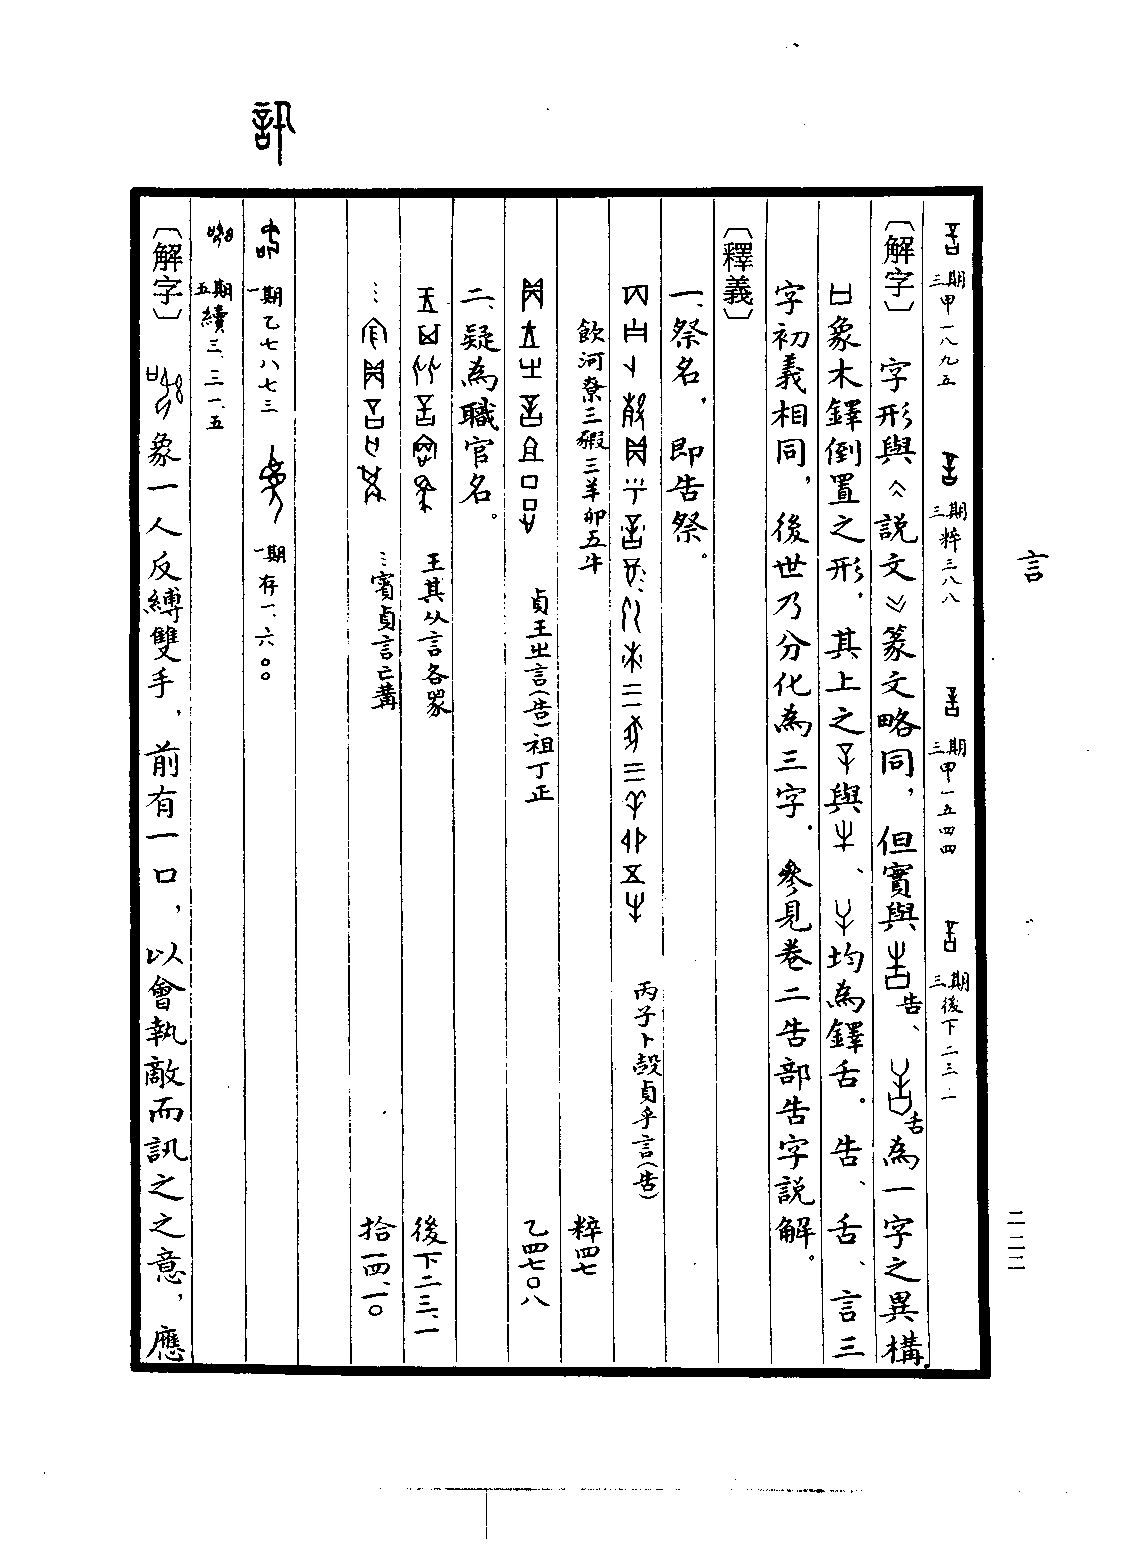 言
二二二
三期甲一八九五 三期粹三八八 三期甲一五四四 三期後下二三.一
〔解字〕字形與《說文》篆文略同,但實與告、舌為一字之異構.
象木鐸倒置之形.其上之與、均為鐸舌.告、舌、言三
字初義相同,後世乃分化為三字.參見卷二告部告字說解。
〔釋義〕
一、祭名,即告祭。
丙子卜㱿貞乎言(告)
飲河尞三豭三羊卯五牛 粹四七
貞王㞢言(告)祖丁正 乙四七〇八
二、疑為職官名。
王其从言各眾 後下二三.一
…賓貞言亡冓 拾一四.一〇
訊
一期乙七八七三 一期存一.六〇〇
五期續三.三一.五
〔解字〕象一人反縛雙手,前有一口,以會執敵而訊之之意,應